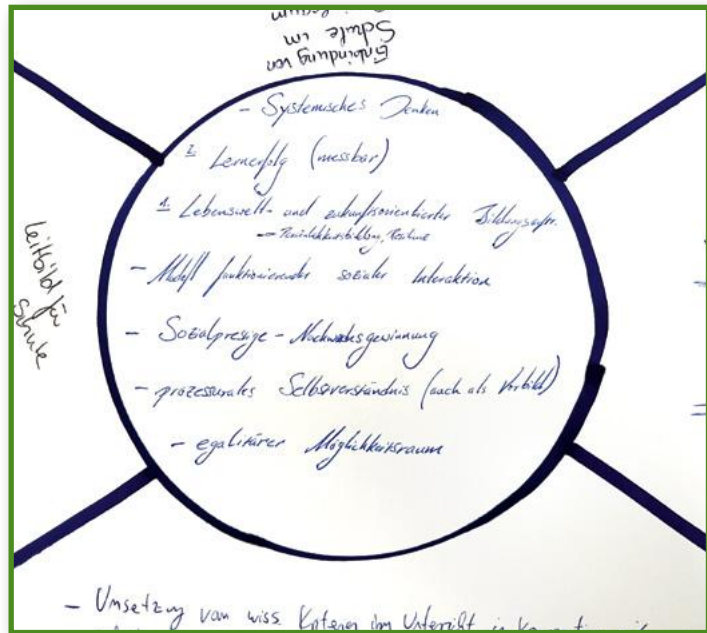 Einbindung von
Schule im
- Systemisches Denken
2. Lernerfolg (messbar)
1. Lebenswelt- und zukunftsorientierter Bildungsauftr.
→ Persönlichkeitsbildung,
- Modell funktionierender sozialer Interaktion
- Sozialprestige - Nachwuchsgewinnung
- prozessurales Selbstverständnis (auch als Vorbild)
- egalitärer Möglichkeitsraum
Leitbild für
Schule
- Umsetzung von wiss. im Unterricht in